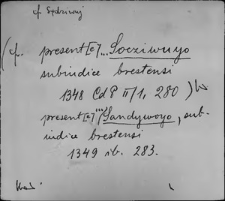 cf. Sędziwoj
(cf. present[e] ... Socziwuyo
subiudice brestensi
1348 CdP II/1, 280)
present[e] ... Sandywoyo, sub-
iudice brestensi
1349 ib. 283.